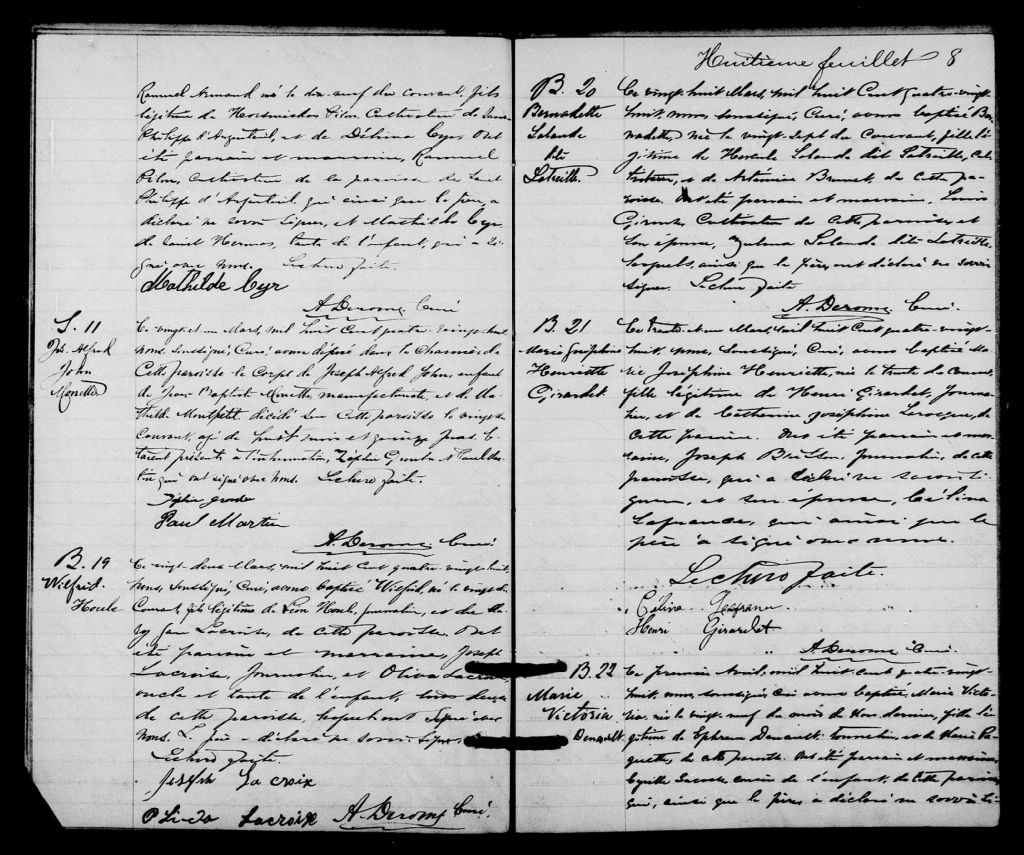 Romuel Armand né le dix-neuf du courant, fils
légitime de Hormisdas Pilon, Cultivateur de Saint
Philippe d'Argenteuil, et de Delvina Cyr. Ont
été parrain et marraine, Romuel
Pilon, Cultivateur de la paroisse de Saint
Philippe d'Argenteuil, qui ainsi que le père, a
déclaré ne savoir signer, et Mathilde Cyr
de Saint Hermas, tante de l'enfant, qui a si-
gné avec nous. Lecture faite.
Mathilde Cyr
A. Derome, Curé
S. 11
Jos. Alfred
John
Monette
Ce vingt et un Mars, mil huit Cent quatre-vingt-huit,
nous, soussigné, Curé, avons déposé dans le Charnier de
Cette paroisse le Corps de Joseph Alfred John, enfant
de Jean Baptiste Monette, manufacturier, et de Ma-
thilde Montpetit décédé sur cette paroisse le vingt du
Courant, agé de huit mois et quinze jours. E-
taient présents à l'inhumation, Zéphir Giroulx et Paul Mar-
tin qui ont signé avec nous. Lecture faite.
Zéphir
Paul Martin
A. Derome, Curé
B. 19
Wilfrid
Houle
Ce vingt deux Mars, mil huit cent quatre-vingt-huit,
nous, soussigné, Curé, avons baptisé Wilfrid, né le vingt du
Courant, fils légitime de Léon Houle, journalier, et de
Lacroix, de cette paroisse. Ont
été parrain et marraine, Joseph
Lacroix, Journalier, et Oliva Lacroix
oncle et tante de l'enfant, tous deux
de cette paroisse, lesquels ont signé avec
nous. Le père a déclaré ne savoir signer.
Lecture faite.
Joseph La croix
Lacroix A. Derome, Curé.
Huitième feuillet 8
B. 20
Bernadette
Lalande
dite
Latreille.
Ce vingt-huit Mars, mil huit Cent quatre-vingt-
huit, nous, soussigné, Curé, avons baptisé Ber-
nadette, née le vingt sept du Courant, fille lé-
gitime de Hercule Lalande dit Latreille, Cul-
tivateur, et de Artémise Brunet, de cette pa-
roisse. Ont été parrain et marraine, Louis
Giroux, Cultivateur de cette paroisse, et
son épouse, Zulma Lalande dite Latreille,
lesquels, ainsi que le père, ont déclaré ne savoir
signer. Lecture faite
A. Derome, Curé.
B. 21
Marie Joséphine
Henriette
Girardet
Ce trente et un Mars, mil huit Cent quatre-vingt-
huit, nous, soussigné, Curé, avons baptisé Ma-
rie Joséphine Henriette, née le trente du Courant,
fille légitime de Henri Girardet, Journa-
lier, et de Catherine Joséphine Larocque, de
cette paroisse. Ont été parrain et mar-
raine, Joseph Journalier, de cette
paroisse, qui a déclaré ne savoir si-
gner, et son épouse, Célina
Lafrance, qui ainsi que le
père a signé avec nous.
Lecture faite.
Célina Lafrance
Henri Girardet
A. Derome, Curé.
B. 22
Marie
Victoria
Denault.
Ce premier Avril, mil huit cent quatre-vingt-
huit, nous, soussigné, Curé avons baptisé, Marie Victo-
ria, née le vingt-neuf du mois de Mars dernier, fille lé-
gitime de Ephrem Denault Journalier, et de Marie Pa-
quette, de cette paroisse. Ont été parrain et marraine,
de l'enfant, de cette paroisse,
qui, ainsi que le père, a déclaré ne savoir si-